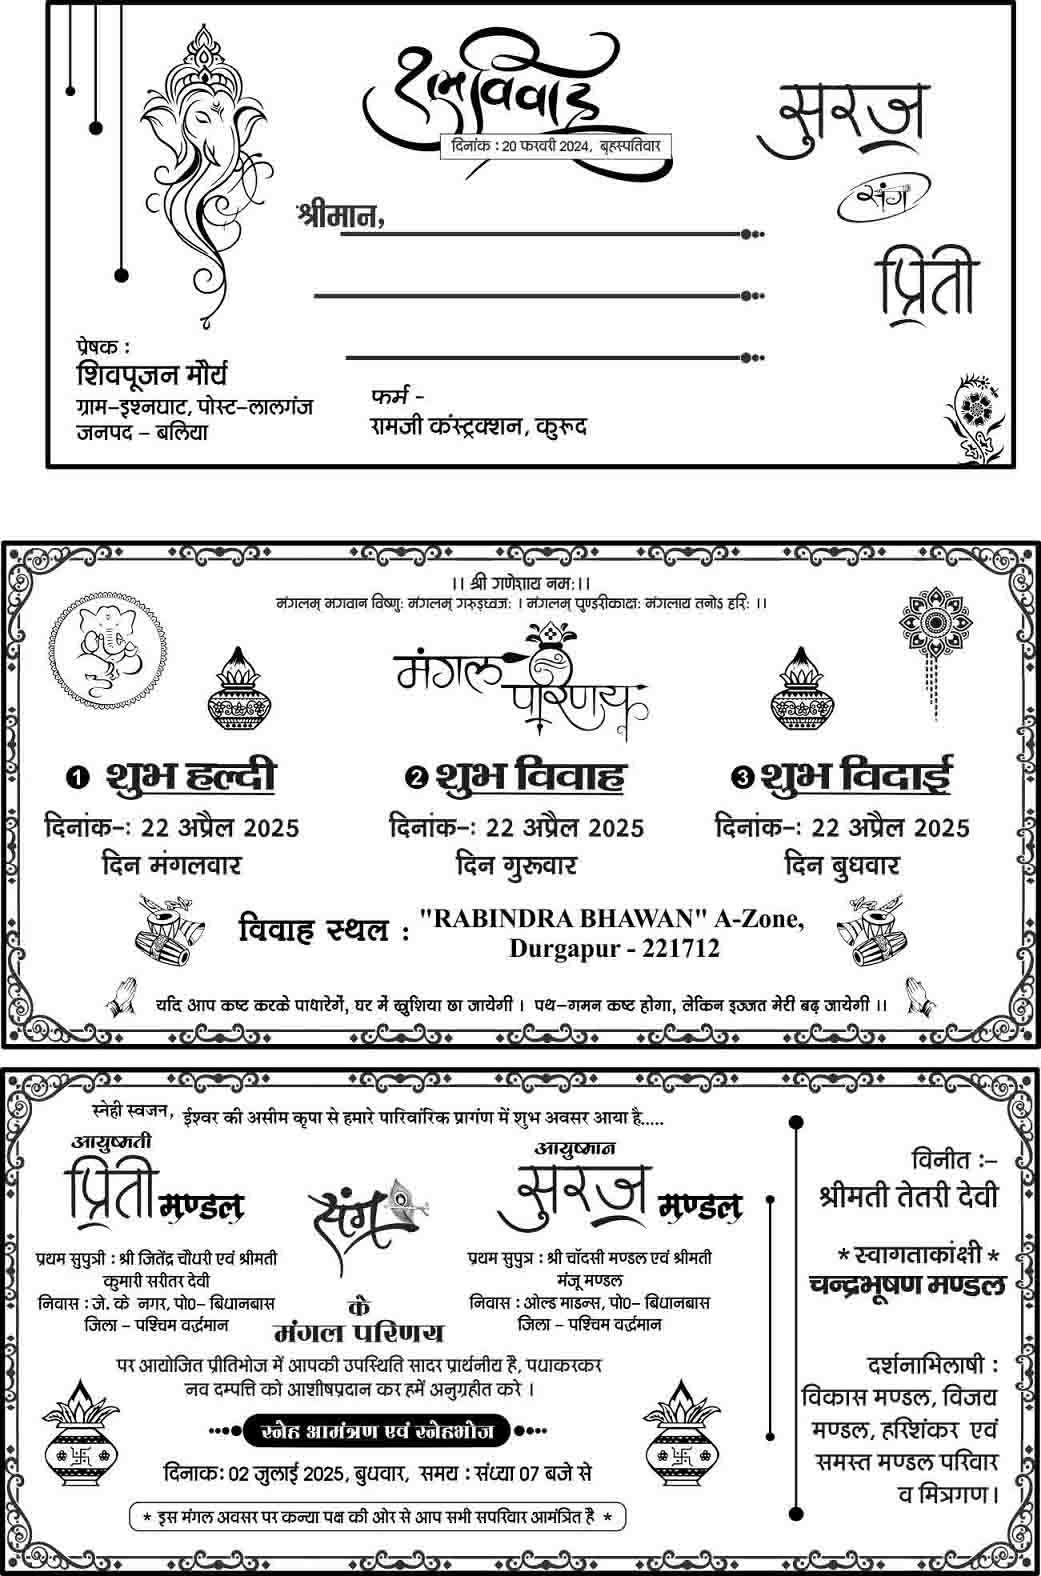 शुभ विवाह
दिनांक : 20 फरवरी 2024, बृहस्पतिवार
सुरज
संग
प्रिती
श्रीमान,
प्रेषक :
शिवपूजन मौर्य
ग्राम-इश्नघाट, पोस्ट-लालगंज
जनपद - बलिया
फर्म -
रामजी कंस्ट्रक्शन, कुरूद
।। श्री गणेशाय नमः।।
मंगलम् भगवान विष्णुः मंगलम् गरुड़ध्वजः । मंगलम् पुण्डरीकाक्षः मंगलाय तनोऽ हरिः ।।
मंगल परिणय
1 शुभ हल्दी
दिनांक-: 22 अप्रैल 2025
दिन मंगलवार
2 शुभ विवाह
दिनांक-: 22 अप्रैल 2025
दिन गुरूवार
3 शुभ विदाई
दिनांक-: 22 अप्रैल 2025
दिन बुधवार
विवाह स्थल : "RABINDRA BHAWAN" A-Zone,
Durgapur - 221712
यदि आप कष्ट करके पाधारेगें, घर में खुशिया छा जायेगी । पथ-गमन कष्ट होगा, लेकिन इज्जत मेरी बढ़ जायेगी ।।
स्नेही स्वजन, ईश्वर की असीम कृपा से हमारे पारिवांरिक प्रागंण में शुभ अवसर आया है.....
आयुष्मती
प्रिती मण्डल
प्रथम सुपुत्री : श्री जितेंद्र चौधरी एवं श्रीमती
कुमारी सरीतर देवी
निवास : जे. के नगर, पो0- बिधानबास
जिला - पश्चिम वर्द्धमान
संग
आयुष्मान
सुरज मण्डल
प्रथम सुपुत्र : श्री चाँदसी मण्डल एवं श्रीमती
मंजू मण्डल
निवास : ओल्ड माइन्स, पो0- बिधानबास
जिला - पश्चिम वर्द्धमान
के
मंगल परिणय
पर आयोजित प्रीतिभोज में आपकी उपस्थिति सादर प्रार्थनीय है, पधाकरकर
नव दम्पत्ति को आशीषप्रदान कर हमें अनुग्रहीत करे ।
स्नेह आमंत्रण एवं स्नेहभोज
दिनांक: 02 जुलाई 2025, बुधवार, समय : संध्या 07 बजे से
* इस मंगल अवसर पर कन्या पक्ष की ओर से आप सभी सपरिवार आमंत्रित है *
विनीत :-
श्रीमती तेतरी देवी
* स्वागताकांक्षी *
चन्द्रभूषण मण्डल
दर्शनाभिलाषी :
विकास मण्डल, विजय
मण्डल, हरिशंकर एवं
समस्त मण्डल परिवार
व मित्रगण।